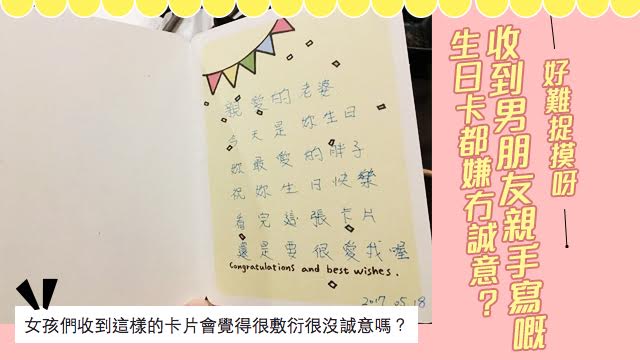 親愛的老婆
今天是妳生日
妳最愛的胖子
祝妳生日快樂
看完這張卡片
還是要很愛我喔
Congratulations and best wishes.
2017 05 18
好難捉摸呀
收到男朋友親手寫嘅
生日卡都嫌冇誠意?
女孩們收到這樣的卡片會覺得很敷衍很沒誠意嗎？